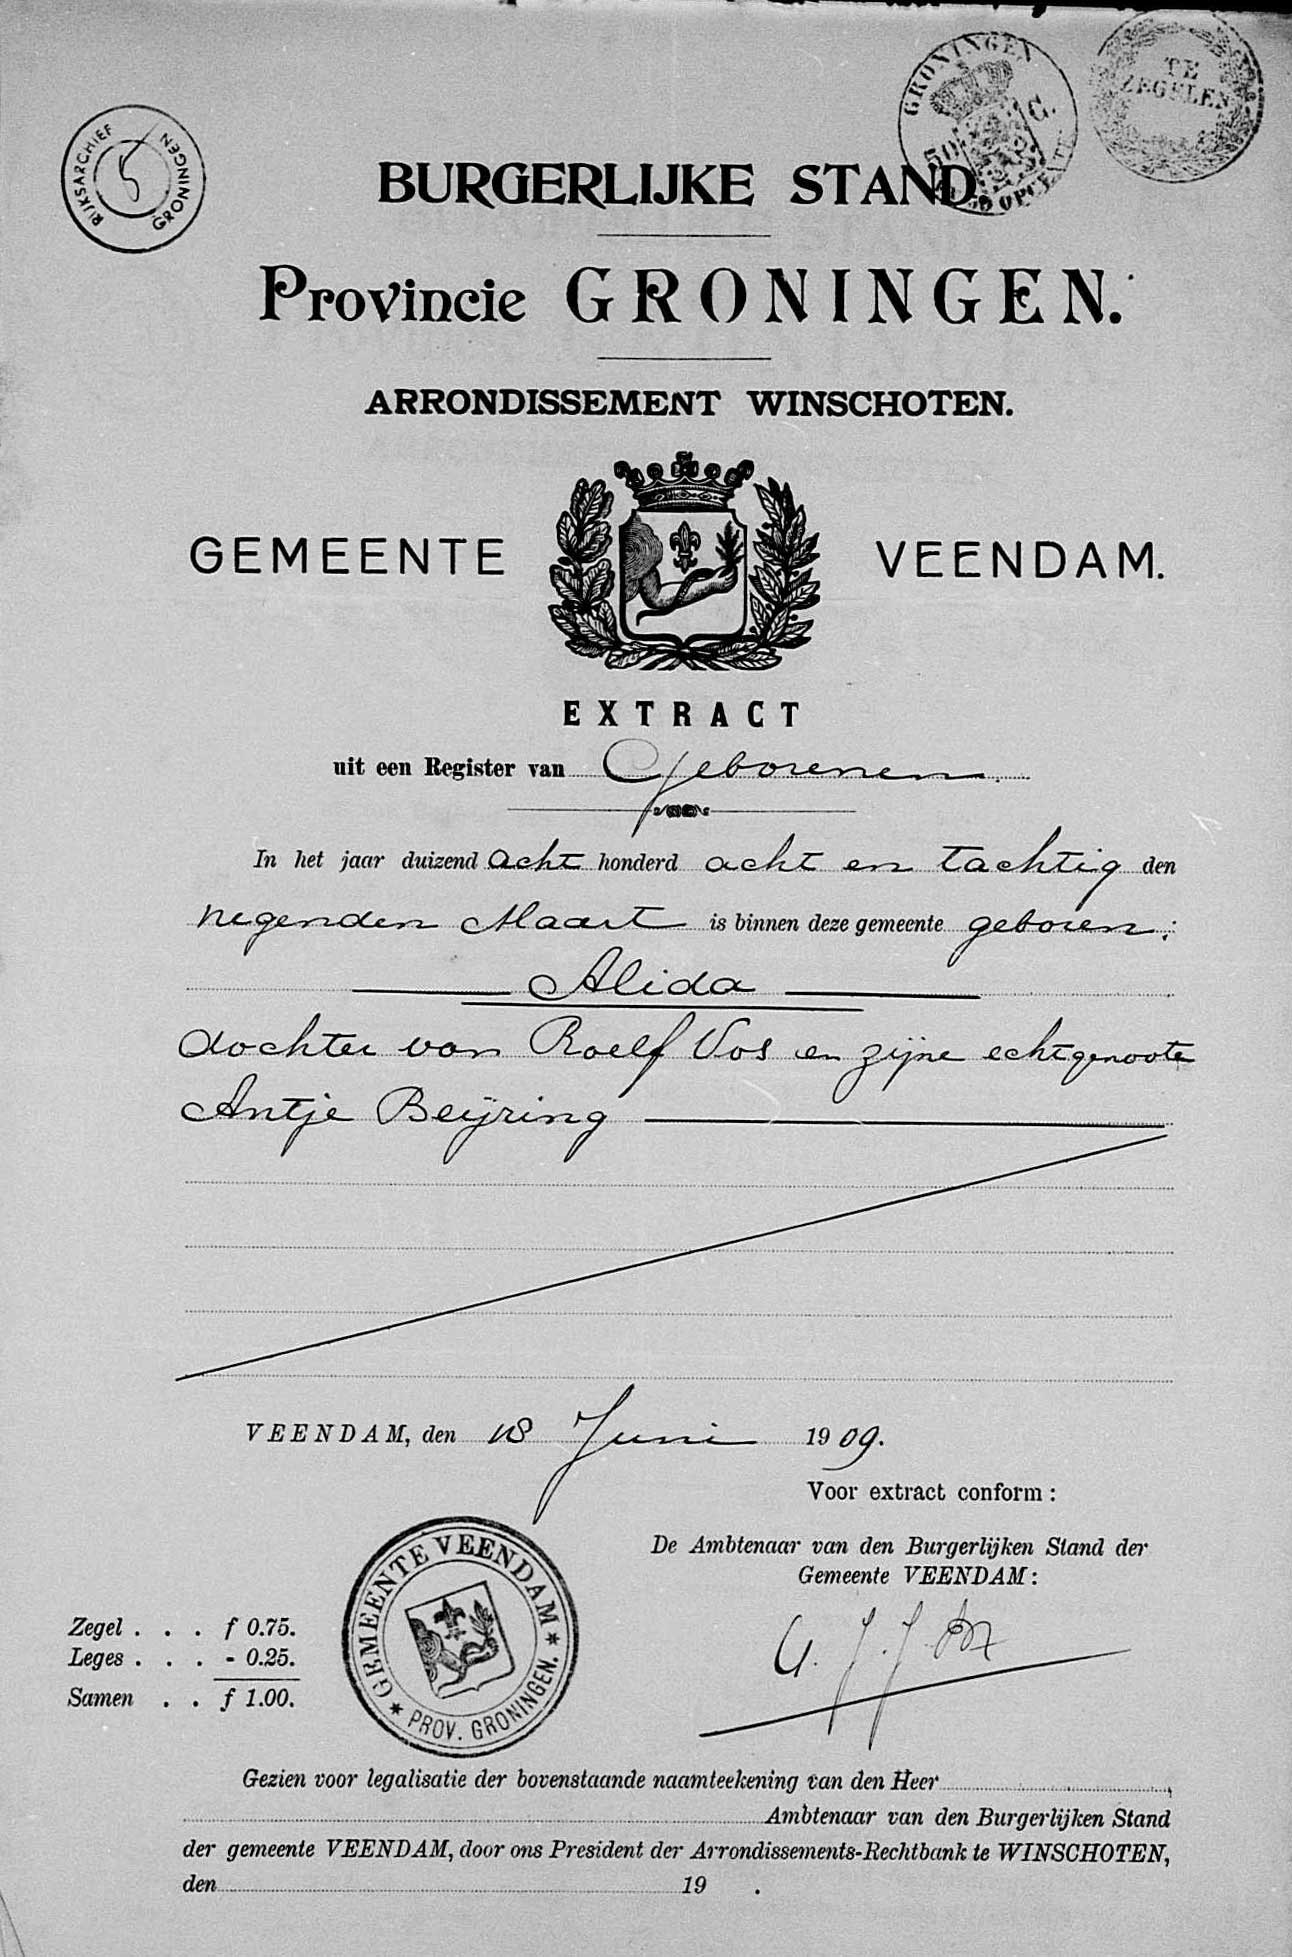 GRONINGEN
50 C.
TE
ZEGELEN
RIJKSARCHIEF
GRONINGEN
5
BURGERLIJKE STAND.
Provincie GRONINGEN.
ARRONDISSEMENT WINSCHOTEN.
GEMEENTE VEENDAM.
EXTRACT
uit een Register van Geborenen.
In het jaar duizend acht honderd acht en tachtig den
negenden Maart is binnen deze gemeente geboren:
Alida
dochter van Roelf Vos en zijne echtgenoote
Antje Beijring
VEENDAM, den 18 Juni 1909.
Voor extract conform:
De Ambtenaar van den Burgerlijken Stand der
Gemeente VEENDAM:
GEMEENTE VEENDAM
PROV. GRONINGEN.
Zegel . . . f 0.75.
Leges . . . - 0.25.
Samen . . f 1.00.
Gezien voor legalisatie der bovenstaande naamteekening van den Heer ,
Ambtenaar van den Burgerlijken Stand
der gemeente VEENDAM, door ons President der Arrondissements-Rechtbank te WINSCHOTEN,
den 19 .